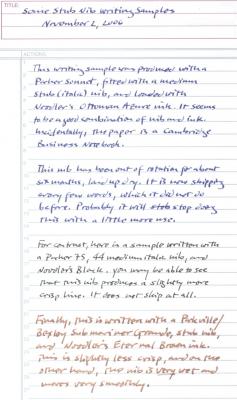 TITLE:
Some Stub Nib Writing Samples
November 2, 2006
ACTIONS:
This writing sample was produced with a
Parker Sonnet, fitted with a medium
stub (italic) nib, and loaded with
Noodler's Ottoman Azure ink. It seems
to be a good combination of nib and ink.
Incidentally, the paper is a Cambridge
Business Notebook.
This nib has been out of rotation for about
six months, laid up dry. It is now skipping
every few words, which it did not do
before. Probably it will stop doing
this with a little more use.
For contrast, here is a sample written with
a Parker 75, 44 medium italic nib, and
Noodler's Black. You may be able to see
that this nib produces a slightly more
crisp line. It does not skip at all.
Finally, this is written with a Parkville/
Bexley Submariner Grande, stub nib,
and Noodler's Eternal Brown ink.
This is slightly less crisp, and on the
other hand, the nib is very wet and
moves very smoothly.